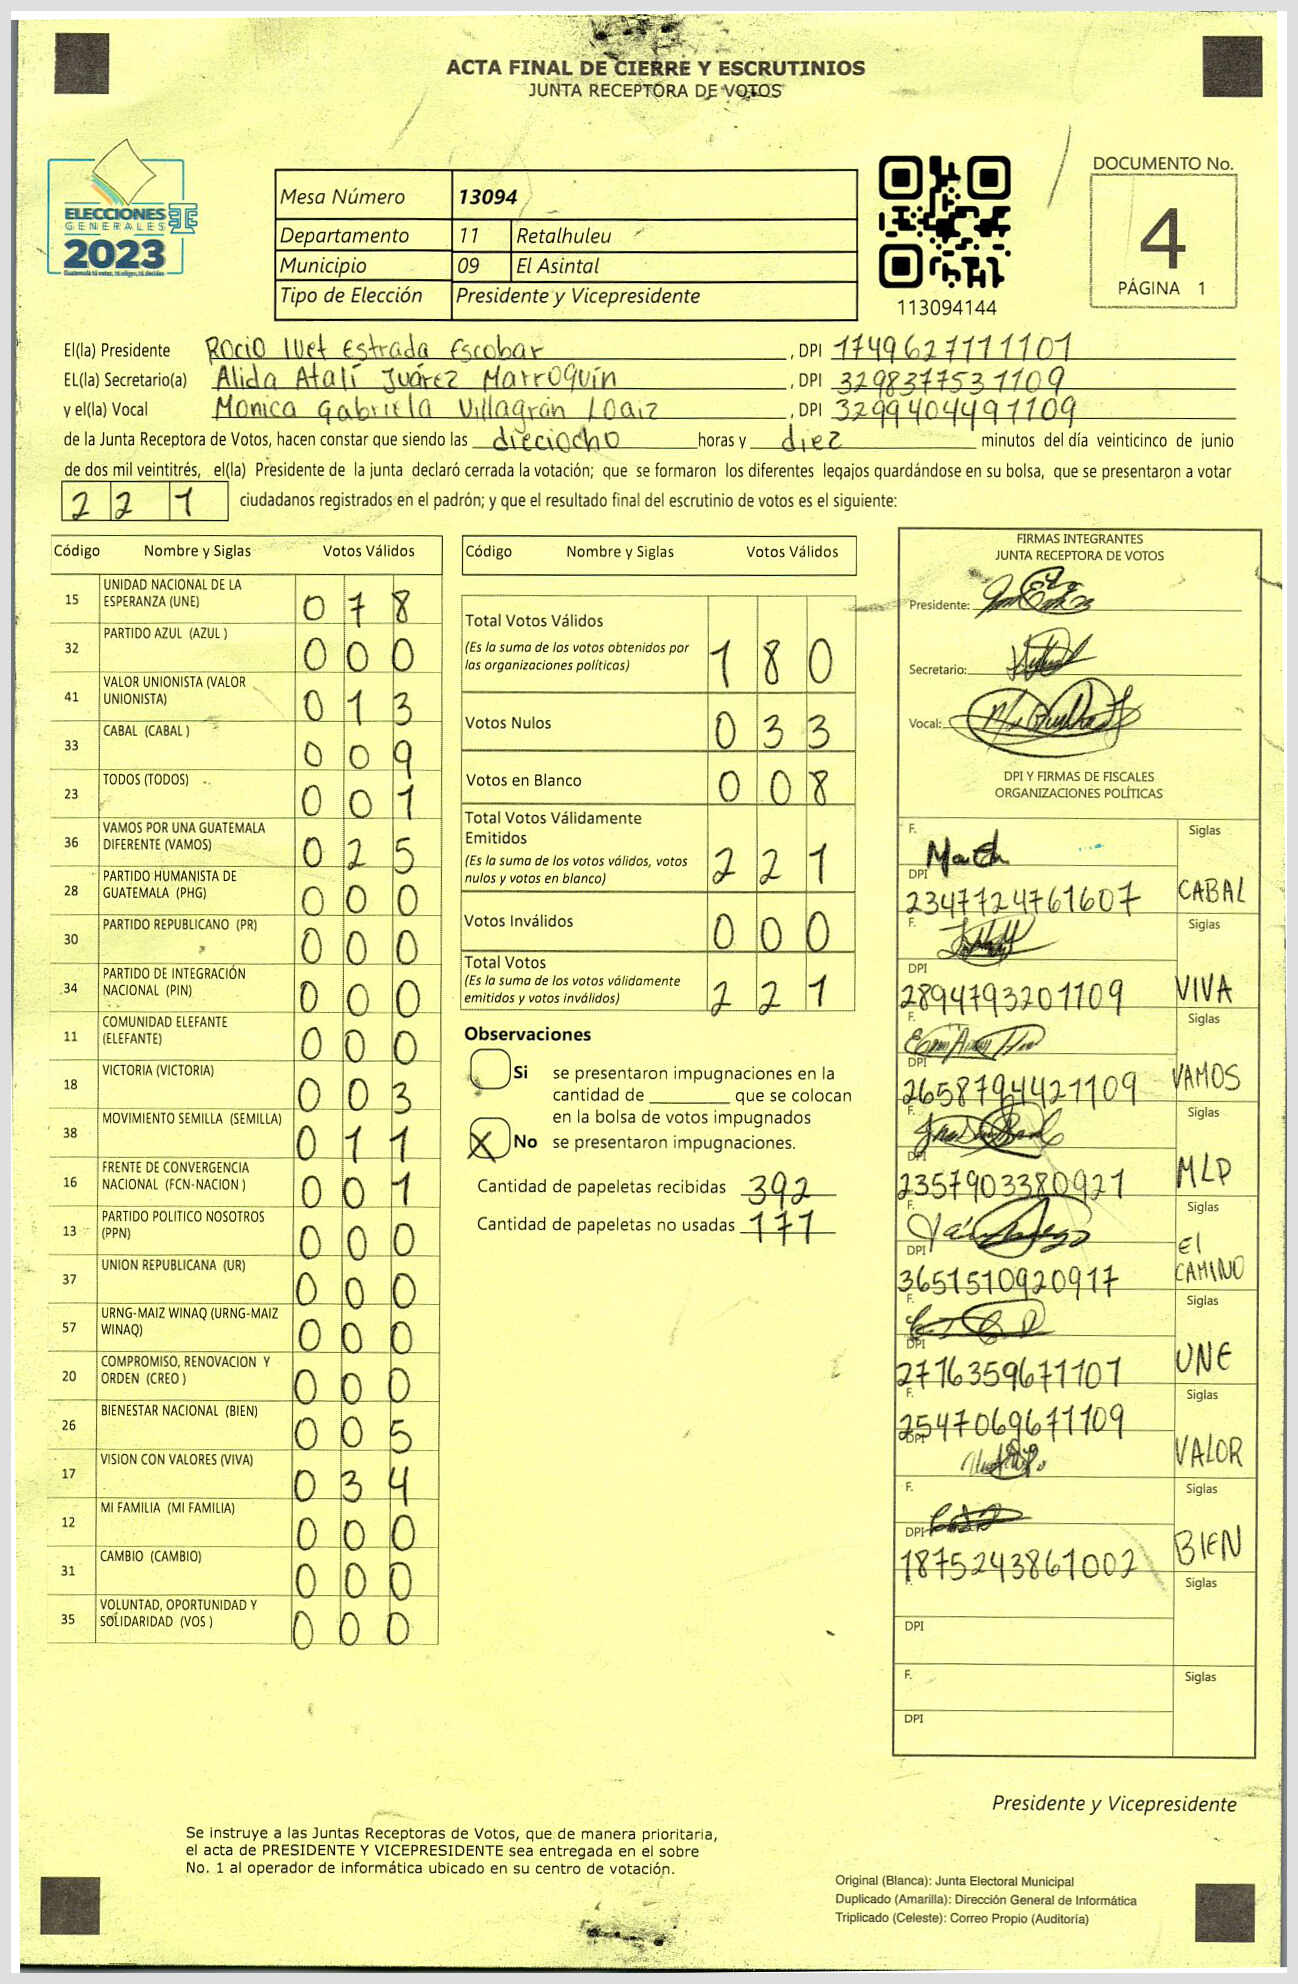 ACTA FINAL DE CIERRE Y ESCRUTINIOS
JUNTA RECEPTORA DE VOTOS
ELECCIONES
GENERALES
2023
Guatemala tú votas, tú eliges, tú decides
Mesa Número 13094
Departamento 11 Retalhuleu
Municipio 09 El Asintal
Tipo de Elección Presidente y Vicepresidente
113094144
DOCUMENTO No.
4
PÁGINA 1
El(la) Presidente Rocio Ivet Estrada Escobar, DPI 1749627111101
EL(la) Secretario(a) Alida Atalí Juárez Marroquín, DPI 3298377531109
y el(la) Vocal Monica Gabriela Villagrán Loaiz, DPI 3299404491109
de la Junta Receptora de Votos, hacen constar que siendo las dieciocho horas y diez minutos del día veinticinco de junio
de dos mil veintitrés, el(la) Presidente de la junta declaró cerrada la votación; que se formaron los diferentes legajos quardándose en su bolsa, que se presentaron a votar
221 ciudadanos registrados en el padrón; y que el resultado final del escrutinio de votos es el siguiente:
Código Nombre y Siglas Votos Válidos
15 UNIDAD NACIONAL DE LA ESPERANZA (UNE) 078
32 PARTIDO AZUL (AZUL ) 000
41 VALOR UNIONISTA (VALOR UNIONISTA) 013
33 CABAL (CABAL ) 009
23 TODOS (TODOS) 001
36 VAMOS POR UNA GUATEMALA DIFERENTE (VAMOS) 025
28 PARTIDO HUMANISTA DE GUATEMALA (PHG) 000
30 PARTIDO REPUBLICANO (PR) 000
34 PARTIDO DE INTEGRACIÓN NACIONAL (PIN) 000
11 COMUNIDAD ELEFANTE (ELEFANTE) 000
18 VICTORIA (VICTORIA) 003
38 MOVIMIENTO SEMILLA (SEMILLA) 011
16 FRENTE DE CONVERGENCIA NACIONAL (FCN-NACION ) 001
13 PARTIDO POLITICO NOSOTROS (PPN) 000
37 UNION REPUBLICANA (UR) 000
57 URNG-MAIZ WINAQ (URNG-MAIZ WINAQ) 000
20 COMPROMISO, RENOVACION Y ORDEN (CREO ) 000
26 BIENESTAR NACIONAL (BIEN) 005
17 VISION CON VALORES (VIVA) 034
12 MI FAMILIA (MI FAMILIA) 000
31 CAMBIO (CAMBIO) 000
35 VOLUNTAD, OPORTUNIDAD Y SOLIDARIDAD (VOS ) 000
Código Nombre y Siglas Votos Válidos
Total Votos Válidos 180
(Es la suma de los votos obtenidos por
las organizaciones políticas)
Votos Nulos 033
Votos en Blanco 008
Total Votos Válidamente
Emitidos 221
(Es la suma de los votos válidos, votos
nulos y votos en blanco)
Votos Inválidos 000
Total Votos 221
(Es la suma de los votos válidamente
emitidos y votos inválidos)
Observaciones
Si se presentaron impugnaciones en la
cantidad de ________ que se colocan
en la bolsa de votos impugnados
X No se presentaron impugnaciones.
Cantidad de papeletas recibidas 392
Cantidad de papeletas no usadas 171
FIRMAS INTEGRANTES
JUNTA RECEPTORA DE VOTOS
Presidente:
Secretario:
Vocal:
DPI Y FIRMAS DE FISCALES
ORGANIZACIONES POLÍTICAS
F. Siglas
DPI 2347724761607 CABAL
F. Siglas
DPI 2894793201109 VIVA
F. Siglas
DPI 2658794421109 VAMOS
F. Siglas
DPI 2357903380921 MLP
F. Siglas
DPI 3651510920917 El CAMINO
F. Siglas
DPI 2776359671101 UNE
F. Siglas
2547069671109
DPI VALOR
F. Siglas
DPI 1875243861002 BIEN
F. Siglas
DPI
F. Siglas
DPI
Presidente y Vicepresidente
Se instruye a las Juntas Receptoras de Votos, que de manera prioritaria,
el acta de PRESIDENTE Y VICEPRESIDENTE sea entregada en el sobre
No. 1 al operador de informática ubicado en su centro de votación.
Original (Blanca): Junta Electoral Municipal
Duplicado (Amarilla): Dirección General de Informática
Triplicado (Celeste): Correo Propio (Auditoría)